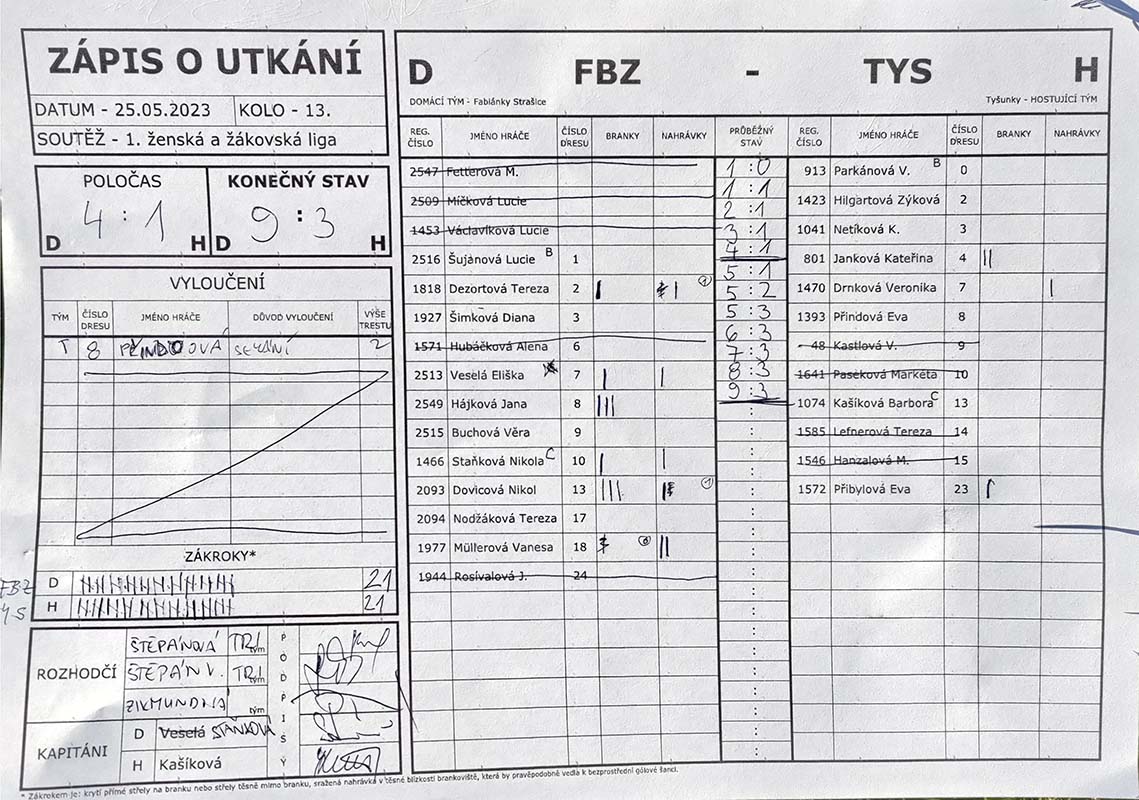 ZÁPIS O UTKÁNÍ
DATUM - 25.05.2023 KOLO - 13.
SOUTĚŽ - 1. ženská a žákovská liga
POLOČAS KONEČNÝ STAV
4 : 1 9 : 3
D H D H
VYLOUČENÍ
TÝM ČÍSLO DRESU JMÉNO HRÁČE DŮVOD VYLOUČENÍ VÝŠE TRESTU
T 8 SEKÁNÍ 2
ZÁKROKY*
FBZ D 21
H 21
ROZHODČÍ
ŠTĚPÁNOVÁ TŘI tým
ŠTĚPÁN V. TŘI tým
ZIKMUNDNÁ tým
PODPISY
KAPITÁNI
D Veselá STAŇKOVÁ
H Kašíková
D FBZ - TYS H
DOMÁCÍ TÝM - Fabiánky Strašice Tyšunky - HOSTUJÍCÍ TÝM
REG. ČÍSLO JMÉNO HRÁČE ČÍSLO DRESU BRANKY NAHRÁVKY PRŮBĚŽNÝ STAV REG. ČÍSLO JMÉNO HRÁČE ČÍSLO DRESU BRANKY NAHRÁVKY
2547 Fetterová M. 1:0 913 Parkánová V. B 0
2509 Míčková Lucie 1:1 1423 Hilgartová Zýková 2
2:1
1453 Václavíková Lucie 3:1 1041 Netíková K. 3
2516 Šujanová Lucie B 1 4:1 801 Janková Kateřina 4 ||
5:1
1818 Dezortová Tereza 2 | | 1 5:2 1470 Drnková Veronika 7 |
1927 Šimková Diana 3 5:3 1393 Přindová Eva 8
1571 Hubáčková Alena 6 6:3 48 Kastlová V. 9
7:3
2513 Veselá Eliška 7 | | 8:3 1641 Paseková Markéta 10
2549 Hájková Jana 8 ||| 9:3 1074 Kašíková Barbora C 13
2515 Buchová Věra 9 : 1585 Lefnerová Tereza 14
1466 Staňková Nikola C 10 | | : 1546 Hanzalová M. 15
2093 Dovicová Nikol 13 ||| 1 : 1572 Přibylová Eva 23 |
2094 Nodžáková Tereza 17 :
1977 Müllerová Vanesa 18 0 || :
1944 Rosívalová J. 24 :
* Zákrokem je: krytí přímé střely na branku nebo střely těsně mimo branku, sražená nahrávka v těsné blízkosti brankoviště, která by pravěpodobně vedla k bezprostřední gólové šanci.